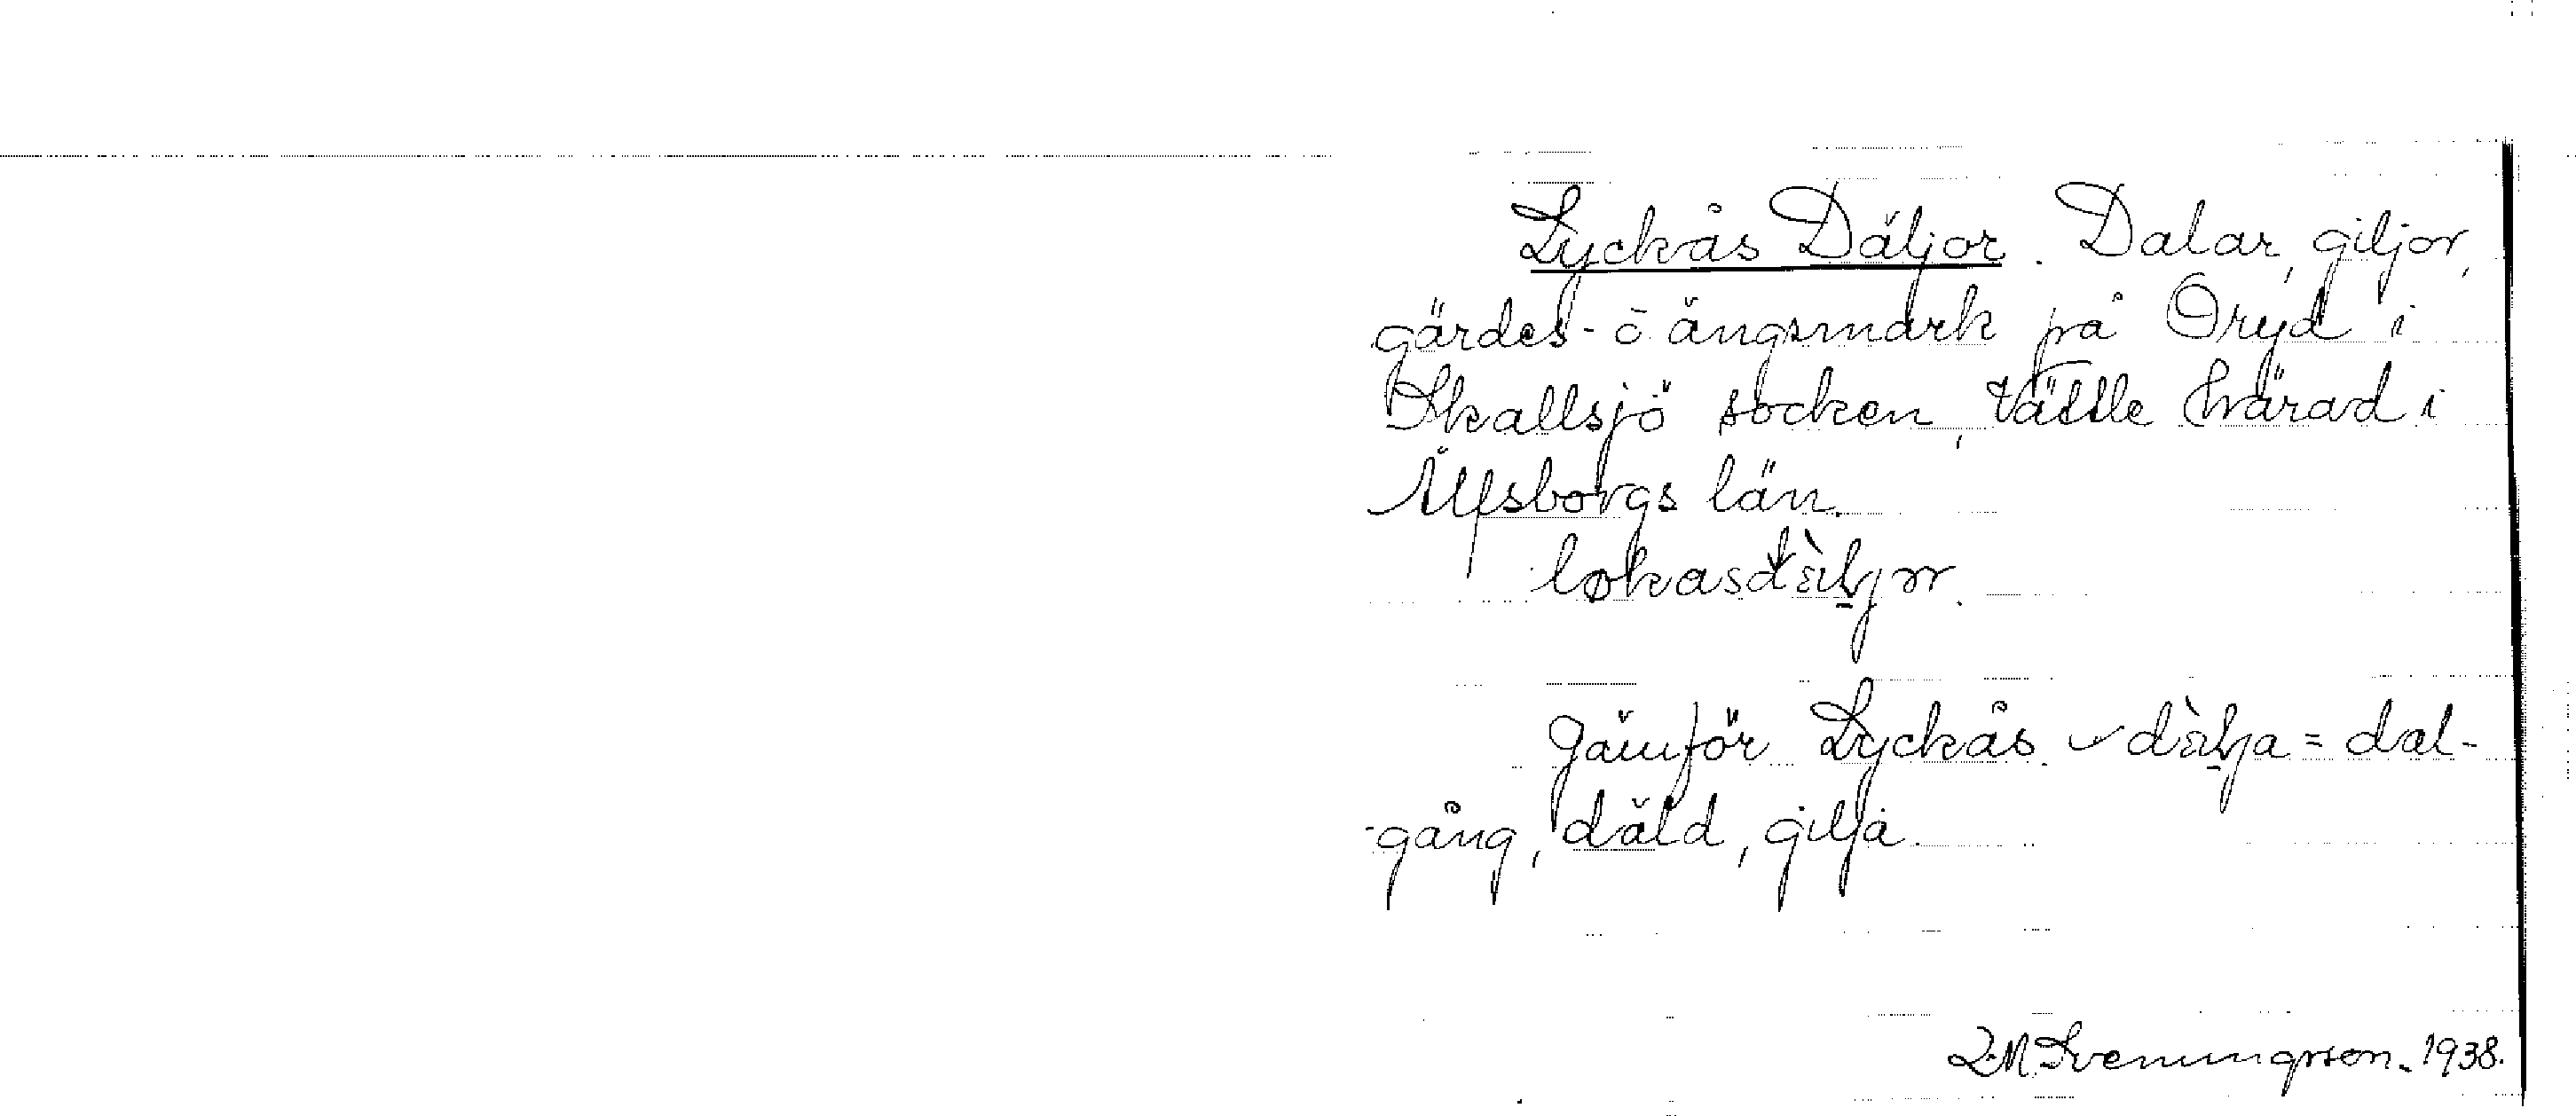 Lyckås Däljor. Dalar, giljor,
gärdes- o ängsmark på Öryd i
Skallsjö socken, Vättle härad i
Älfsborgs län.
Jämför Lyckås o dälja = dal-
-gång, däld, gilja.
Svenungsson. 1938.